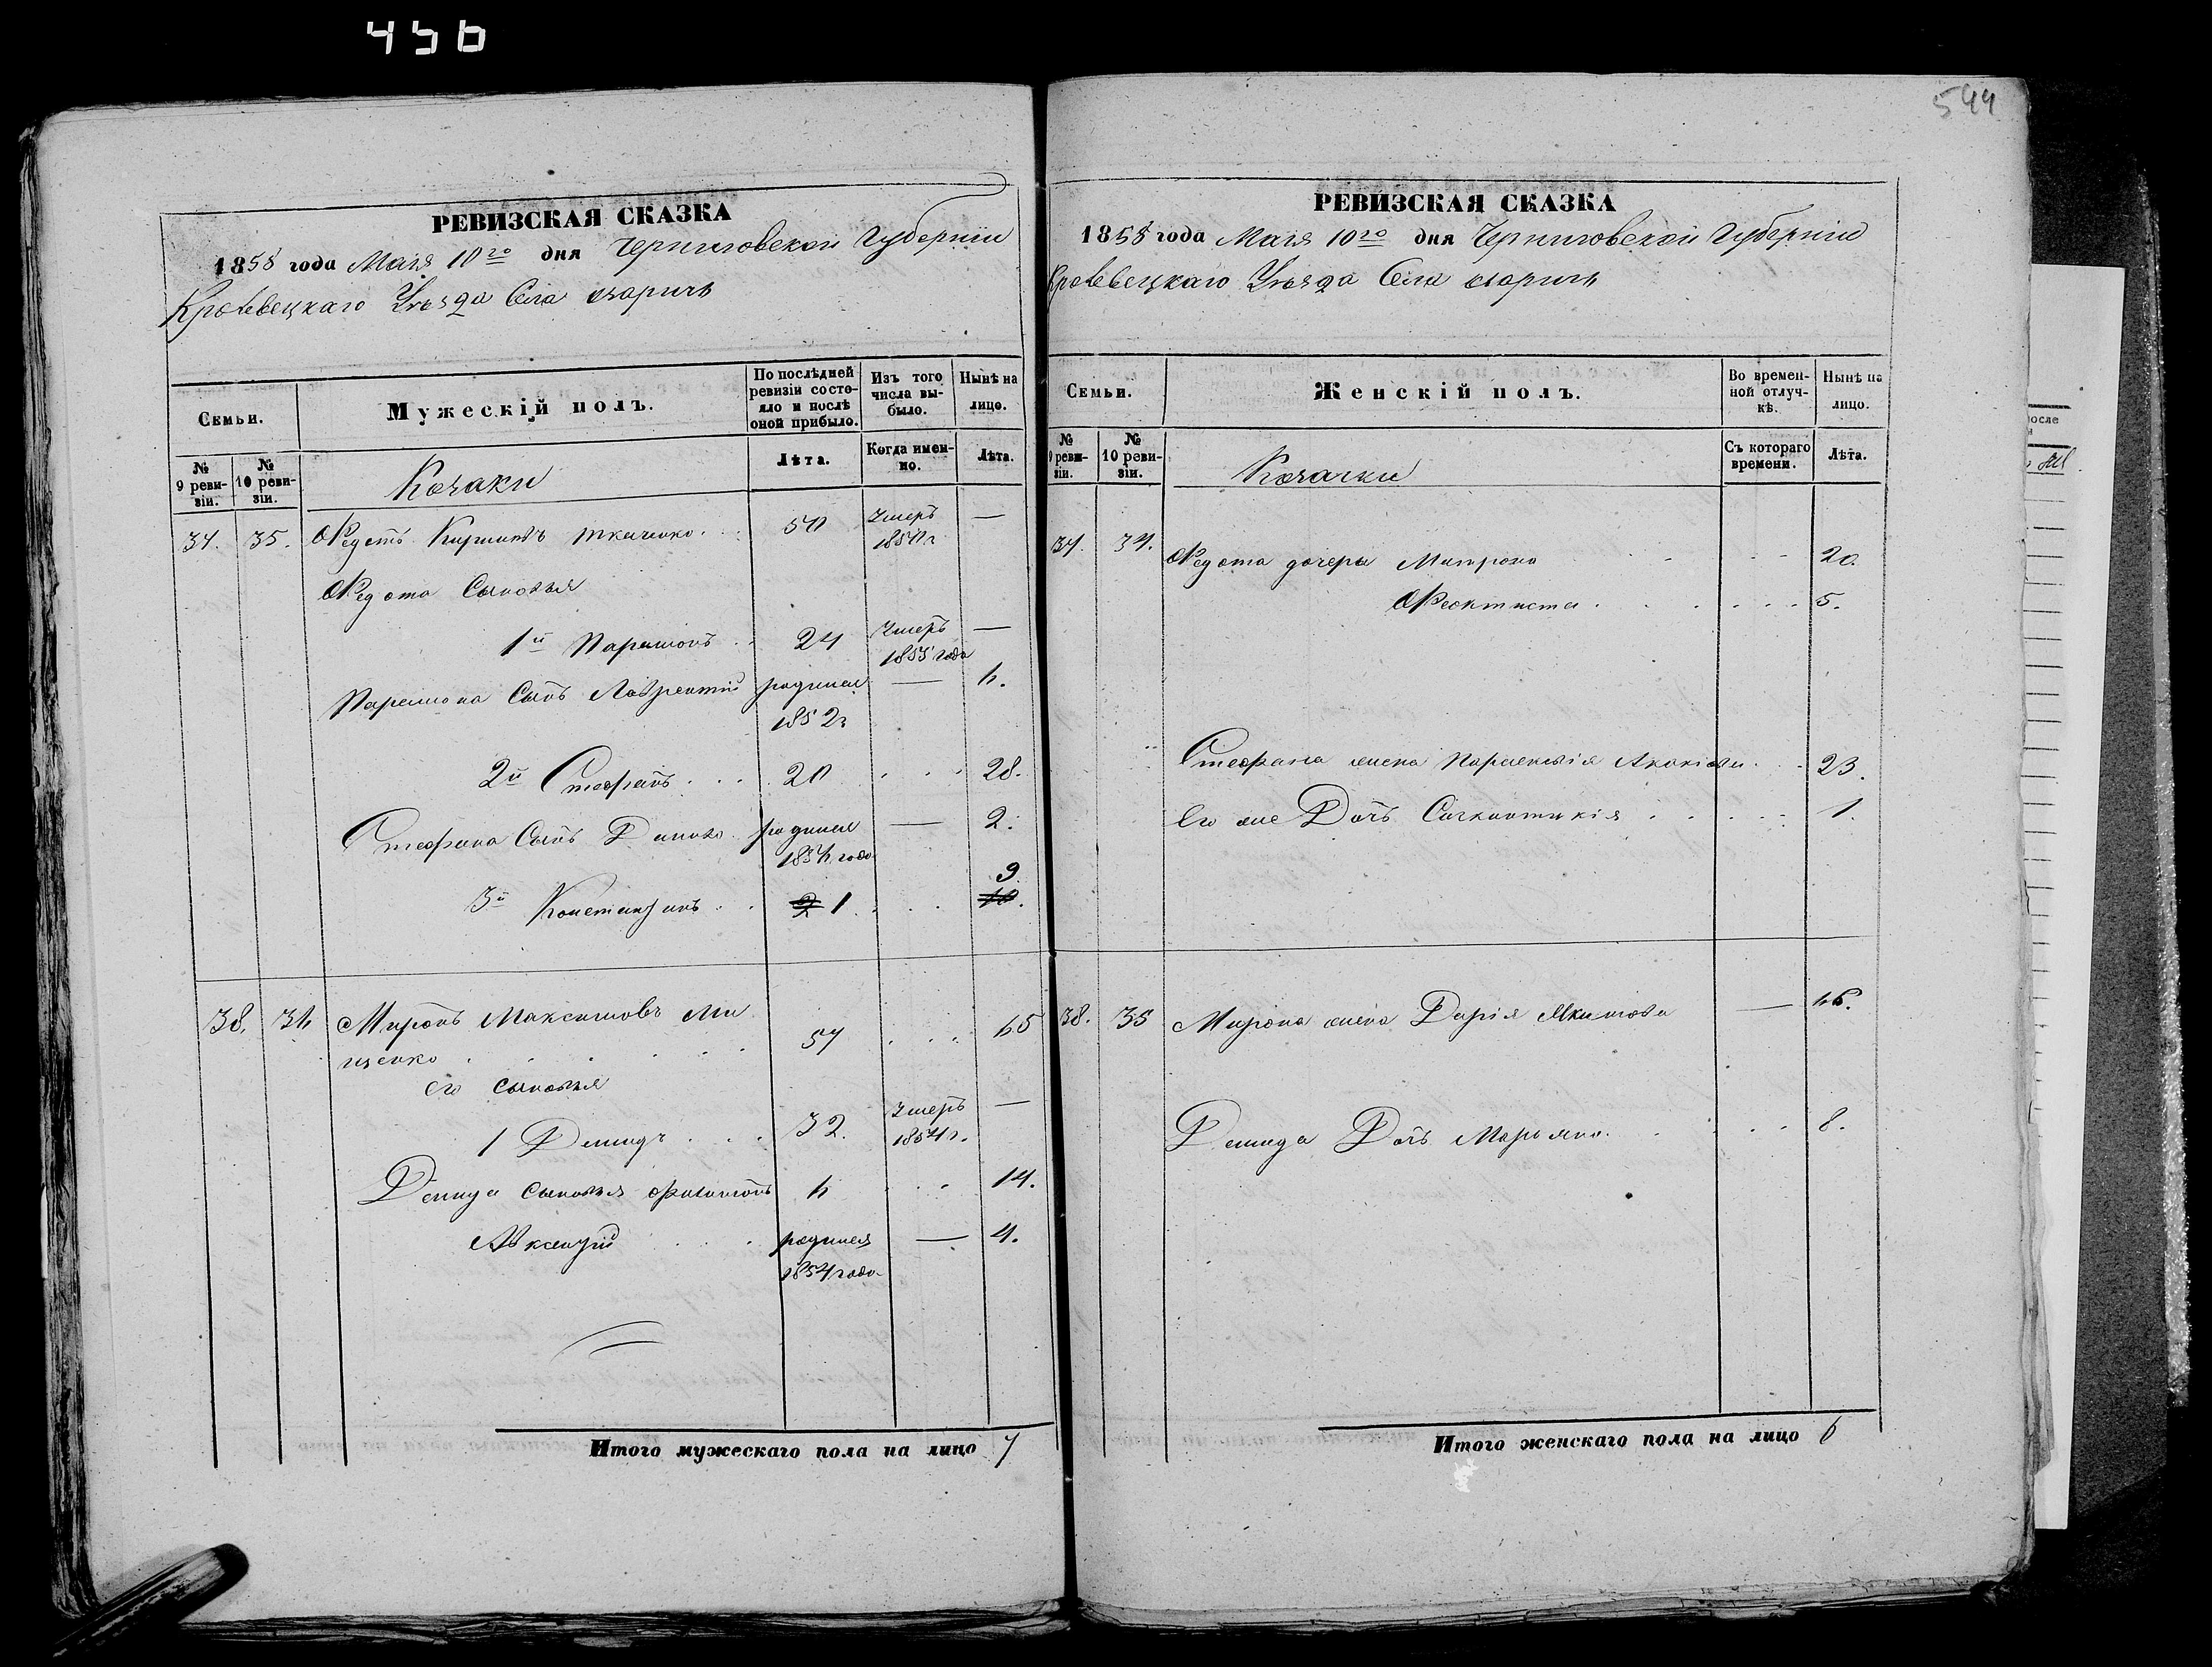 456
544
РЕВИЗСКАЯ СКАЗКА
1858 года Мая 10го дня Черниговской Губерніи
Кролевецкаго Уѣзда Села
Семьи.
Мужескій полъ.
По послѣдней ревизіи состояло и послѣ оной прибыло.
Изъ того числа выбыло.
Нынѣ на лицо.
№ 9 ревизіи.
№ 10 ревизіи.
Козаки
Лѣта.
Когда именно.
Лѣта.
37. 35. Федотъ Ткаченко 50 Умеръ 1850 г —
Федота Сыновья
1й Парамонъ 24 Умеръ 1855 года —
Парамона Сынъ Лаврентій родился 1852г — 6.
2й Стефанъ 20 28.
Стефана Сынъ родился 1856 года — 2.
9
3й Константинъ 2 1 10.
38. 36 Миронъ Максимовъ Ми
щенко 57 65
его сыновья
1 Демидъ 32. Умеръ 1854 г. —
Демида сыновья Филимонъ 6 14.
Авксентій родился 1854 года — 4.
Итого мужескаго пола на лицо 7
РЕВИЗСКАЯ СКАЗКА
1858 года Мая 10го дня Черниговской Губерніи
Кролевецкаго Уѣзда Села
Семьи.
Женскій полъ.
Во временной отлучкѣ.
Нынѣ на лицо.
№ 9 ревизіи.
№ 10 ревизіи.
Козачки
Съ котораго времени.
Лѣта.
37. 34. Федота дочери Матрона 20.
Феоктиста 5.
Стефана жена Параскевія 23.
Его же Дочь 1.
38. 35 Мирона жена Дарія Якимова — 66.
Демида Дочь Марьяна 8.
Итого женскаго пола на лицо 6